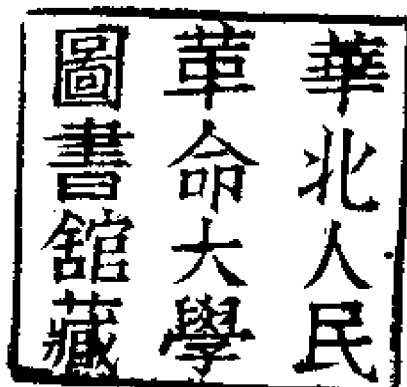 華北人民
革命大學
圖書舘藏